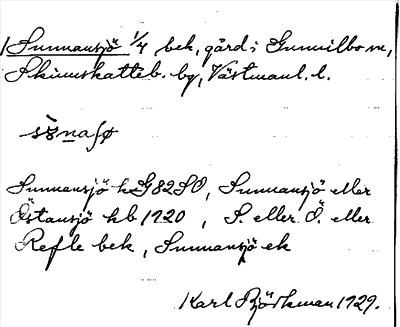 Sunnansjö 1/4 bek, gård i Gunnilbo sn,
Skinnskatteb. bg, Västmanl. l.
Sunnansjö hG82SO, Sunnansjö eller
Östansjö hb 1920, S. eller Ö. eller
Refle bek, Sunnansjö ek
Karl Björkman 1929.